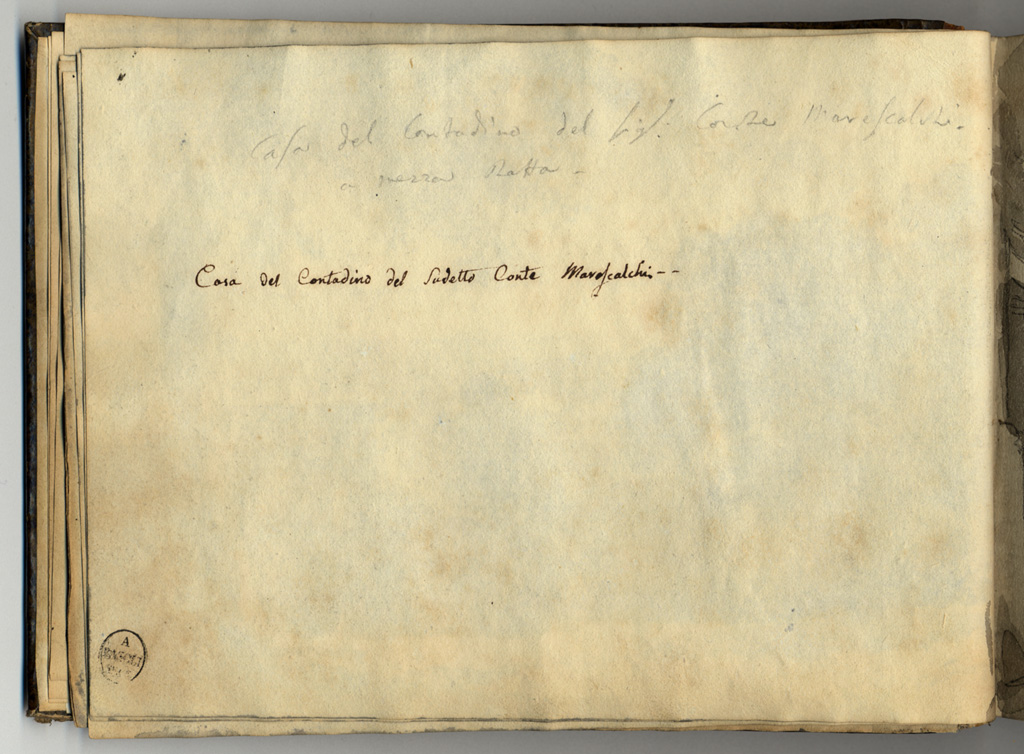 Casa del Contadino del Sig.r Conte Marescalchi.
a mezza Ratta -
Casa del Contadino del Sudetto Conte Marescalchi--
A
BASOLI